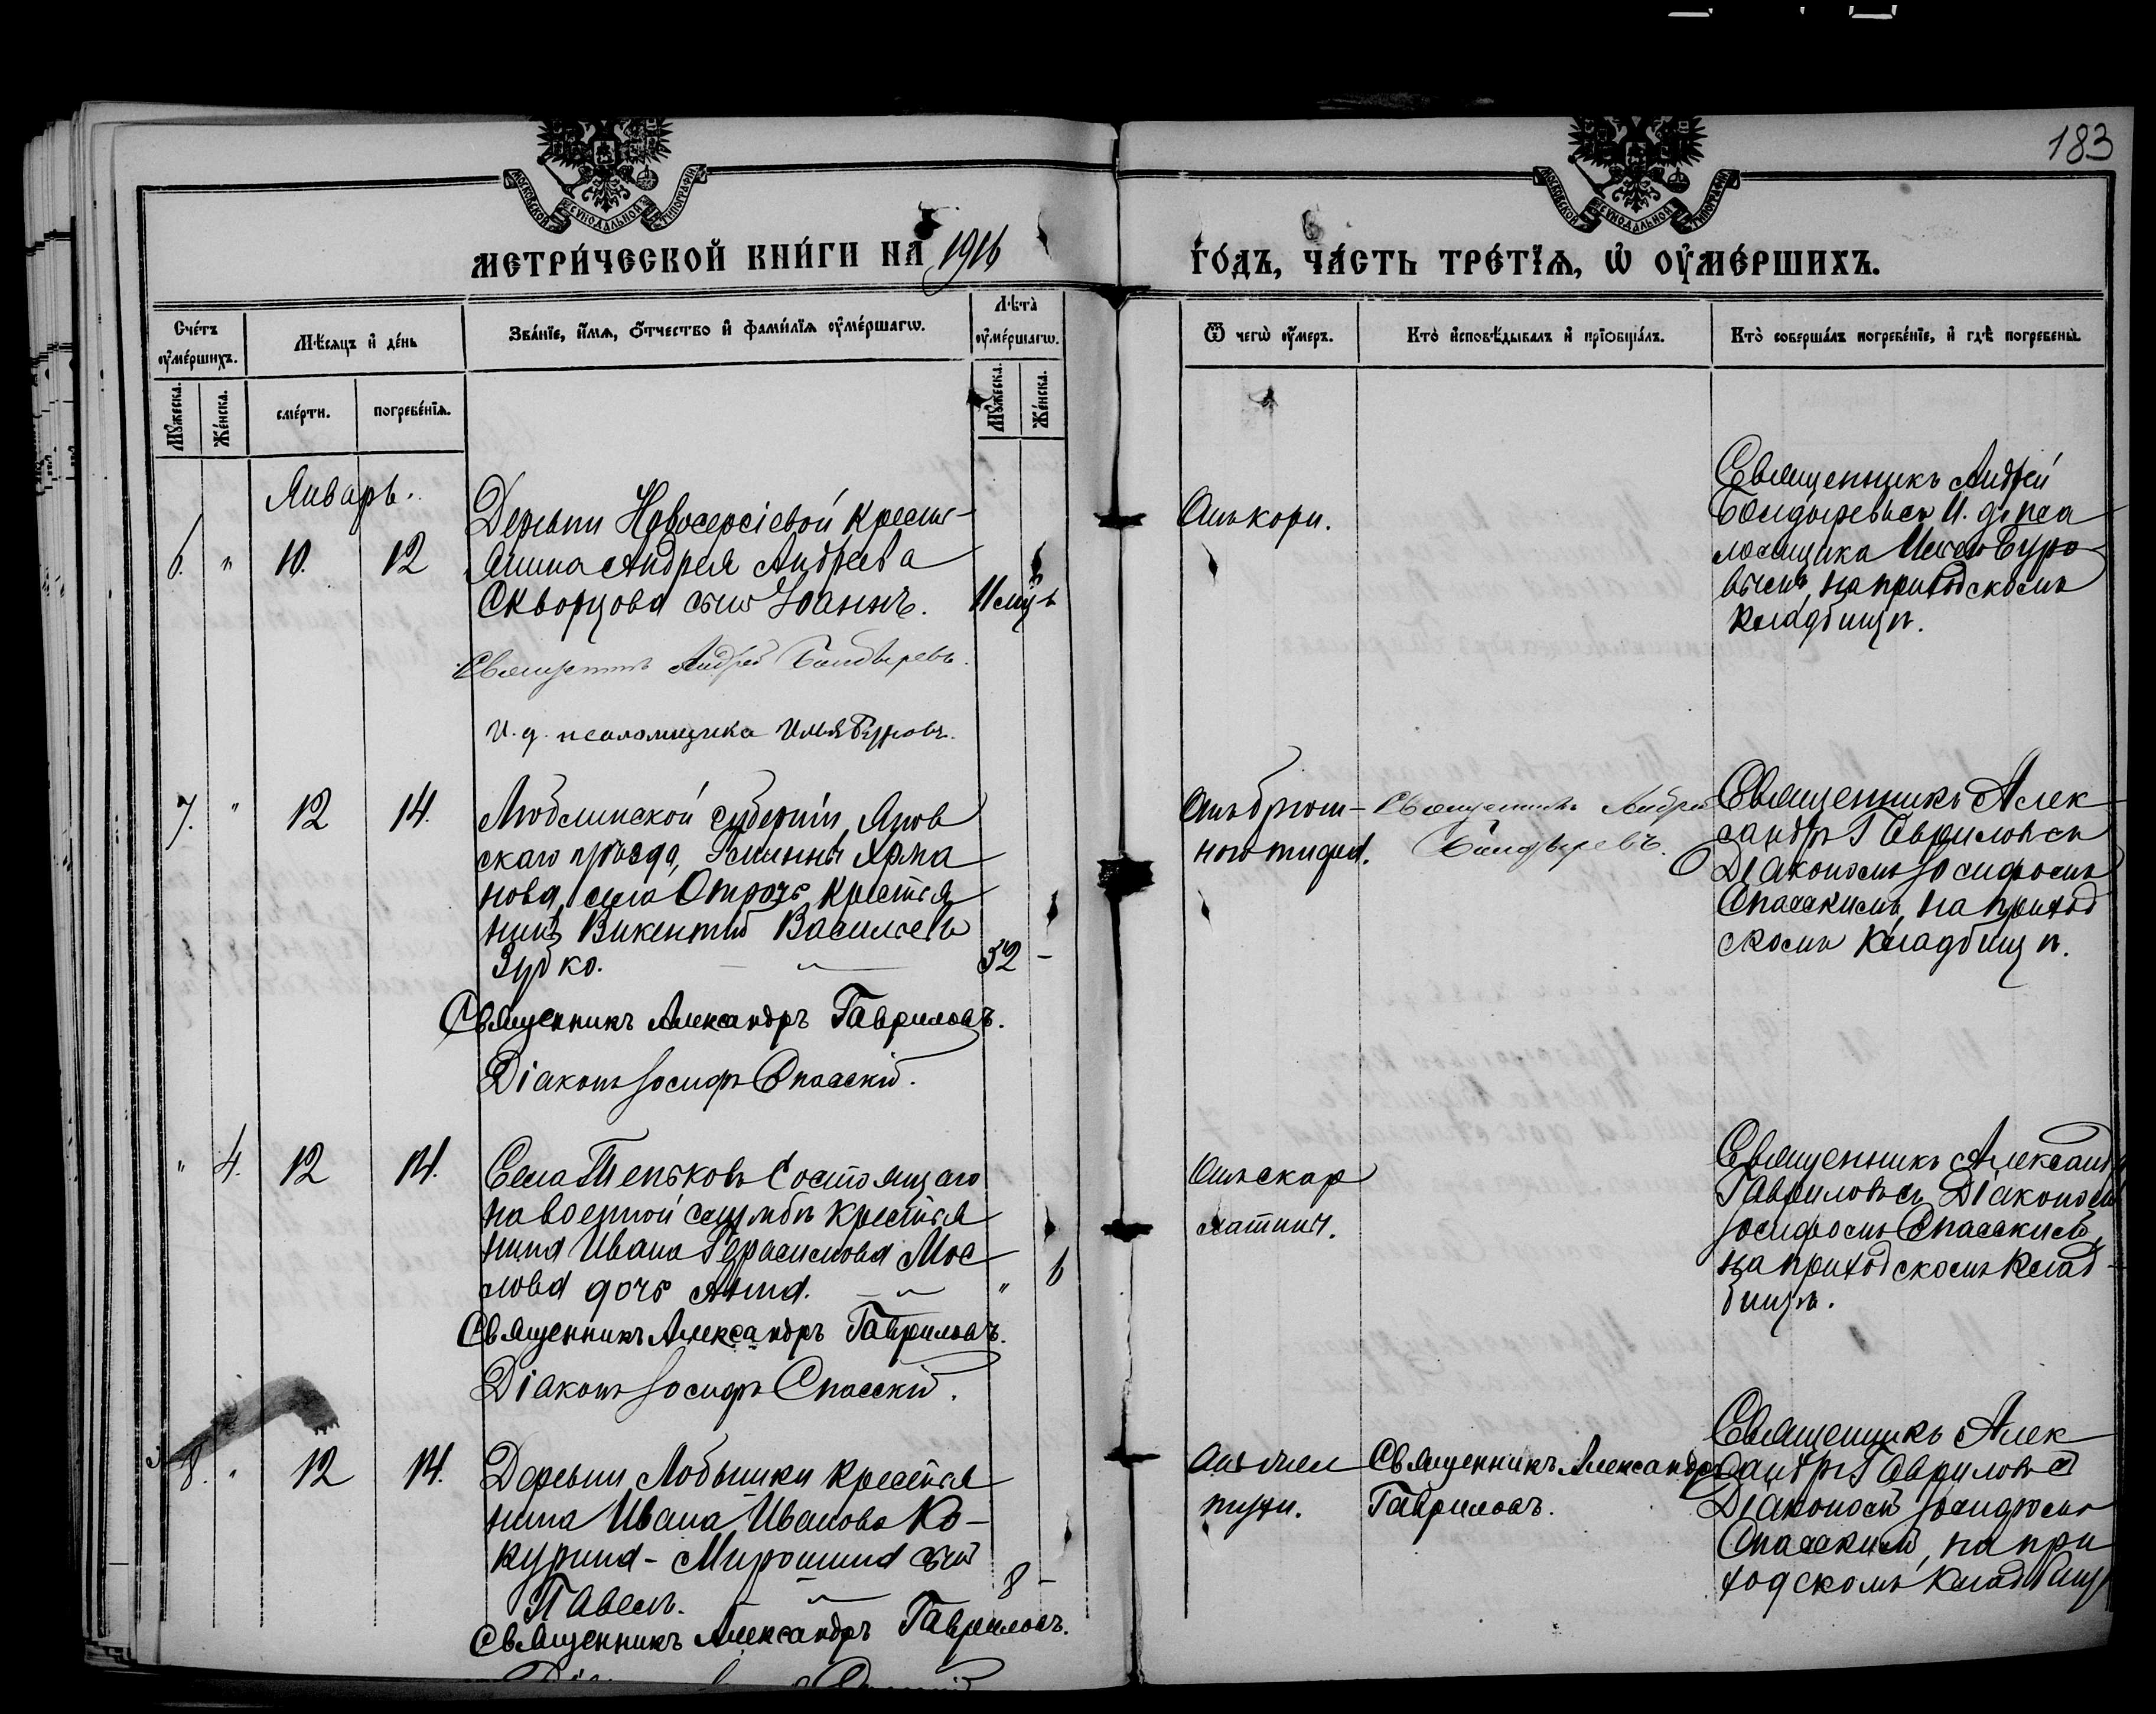 183
МОСКОВСКОЙ СѴНОДАЛЬНОЙ ТИПОГРАФІИ
МОСКОВСКОЙ СѴНОДАЛЬНОЙ ТИПОГРАФІИ
МЕТРИ́ЧЕСКОЙ КНИ́ГИ НА̀ 1916
ГО́ДЪ, ЧА́СТЬ ТРЕ́ТІѦ, Ѡ҆ ОУ҆МЕ́РШИХЪ.
Сче́тъ оу҆ме́ршихъ.
Мѣ́сяцъ и҆ де́нь
Зва́нїе, и҆́мѧ, о҆́тчество и҆ фами́лїѧ оу҆ме́ршагѡ.
Лѣ́та оу҆ме́ршагѡ.
Ѿ чегѡ̀ оу҆́меръ.
Кто̀ и҆сповѣ́дывалъ и҆ прїѻбща́лъ.
Кто̀ соверша́лъ погребе́нїе, и҆ гдѣ̀ погребены̀.
Мꙋ́жеска.
Же́нска.
сме́рти.
погребе́нїѧ.
Мꙋ́жеска.
Же́нска.
Январь.
6. " 10. 12
Деревни Новосергіевой крестья-
янина Андрея Андреева
Скворцова сынъ Іоаннъ. 11 мц-в
Священникъ Андрей Бандыревъ.
И. д. псаломщика Илья Буровъ.
Отъ кори.
Священникъ Андрей
Бандыревъ съ И. д. пса
ломщика Ильею Буро-
вымъ, на приходскомъ
кладбищѣ.
7. " 12 14.
Люблинской губерніи, Янов
скаго уѣзда, Гмины Хрма
нова, села Отрочъ крестья
нинъ Викентій Васильевъ
Зубко. 52 -
Священникъ Александръ Гавриловъ.
Діаконъ Іосифъ Спасскій.
Отъ брюш-
ного тифа.
Священникъ Андрей
Бандыревъ.
Священникъ Алек
сандръ Гавриловъ съ
Діакономъ Іосифомъ
Спасскимъ, на приход
скомъ кладбищѣ.
" 4. 12 14.
Села Теньковъ состоящаго
на военной службѣ крестья
нина Ивана Герасимова Мас
лова дочь Анна. " 6
Священникъ Александръ Гавриловъ.
Діаконъ Іосифъ Спасскій.
Отъ скар
латины.
Священникъ Александръ
Гавриловъ съ Діакономъ
Іосифомъ Спасскимъ,
на приходскомъ клад-
бищѣ.
8. " 12 14.
Деревни Лобышки крестья
нина Ивана Иванова Ко-
курина - Мирошина сынъ
Павелъ. 8 -
Священникъ Александръ Гавриловъ.
Священникъ Александръ
Гавриловъ.
Священникъ Алек
сандръ Гавриловъ съ
Діакономъ Іосифомъ
Спасскимъ, на при
ходскомъ кладбищѣ